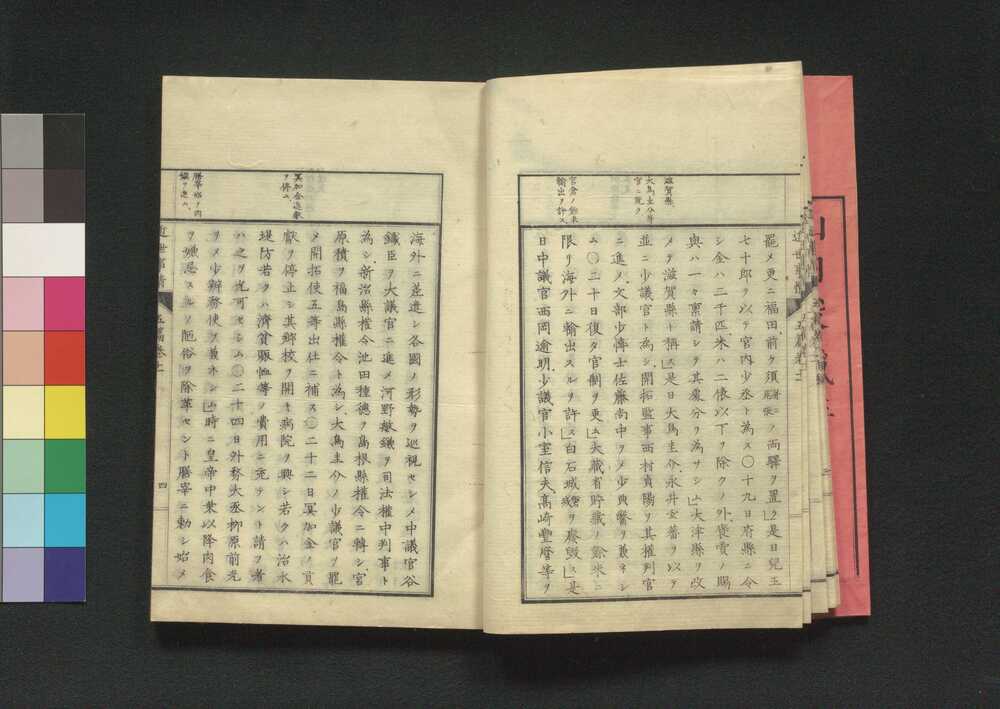 滋賀縣
大鳥圭介等
官ニ就ク
官倉ノ餘米
輸出ヲ許ス
罷メ更ニ福田、前ク須諸ニノ兩驛ヲ置ク是日兒玉
七十郎ヲ以テ宮内少丞ト為ス〇十九日府縣ニ令
シ金ハ三千匹米ハ二俵以下ヲ除クノ外褒賞ノ賜
與ハ一々禀請シテ其處分ヲ為サシム大津縣ヲ改
メテ滋賀縣ト稱ス是日大鳥圭介、永井玄蕃ヲ以テ
並ニ少議官ト為シ、開拓監事西村貞陽ヲ其權判官
ニ進メ、文部少博士佐藤尚中ヲメ少典醫ヲ兼子シ
ム〇二十日復タ官制ヲ更ム大藏省貯藏ノ餘米ニ
限リ海外ニ輸出スルヲ許ス白石城ヲ廢毀ス是
日中議官西岡逾明、少議官小室信夫、高崎豊麿等ヲ
冥加金進獻
ヲ停ム
膳宰始メテ肉
饌ヲ進ム
海外ニ差遣シ各國ノ形勢ヲ巡視セシメ中議官谷
鐵臣ヲ大議官ニ進メ河野敏鎌ヲ司法權中判事ト
為シ、新治縣權令池田種徳ヲ島根縣權令ニ轉シ、官
原積ヲ福島縣權令ト為シ、大鳥圭介ノ少議官ヲ罷
メ開拓使五等出仕ニ補ス〇二十二日冥加金ノ貢
獻ヲ停止シ其郷校ヲ開キ病院ヲ興シ若クハ治水
堤防若クハ濟貧賑恤等ノ費用ニ充テント請フ者
ハ之ヲ允可セシム〇二十四日外務大丞柳原前光
ヲメ少辦務使ヲ兼子シム時ニ皇帝中葉以降肉食
ヲ嫌忌スルノ陋俗ヲ除革セント膳宰ニ勅シ始メ
近世事情
五篇卷之
四